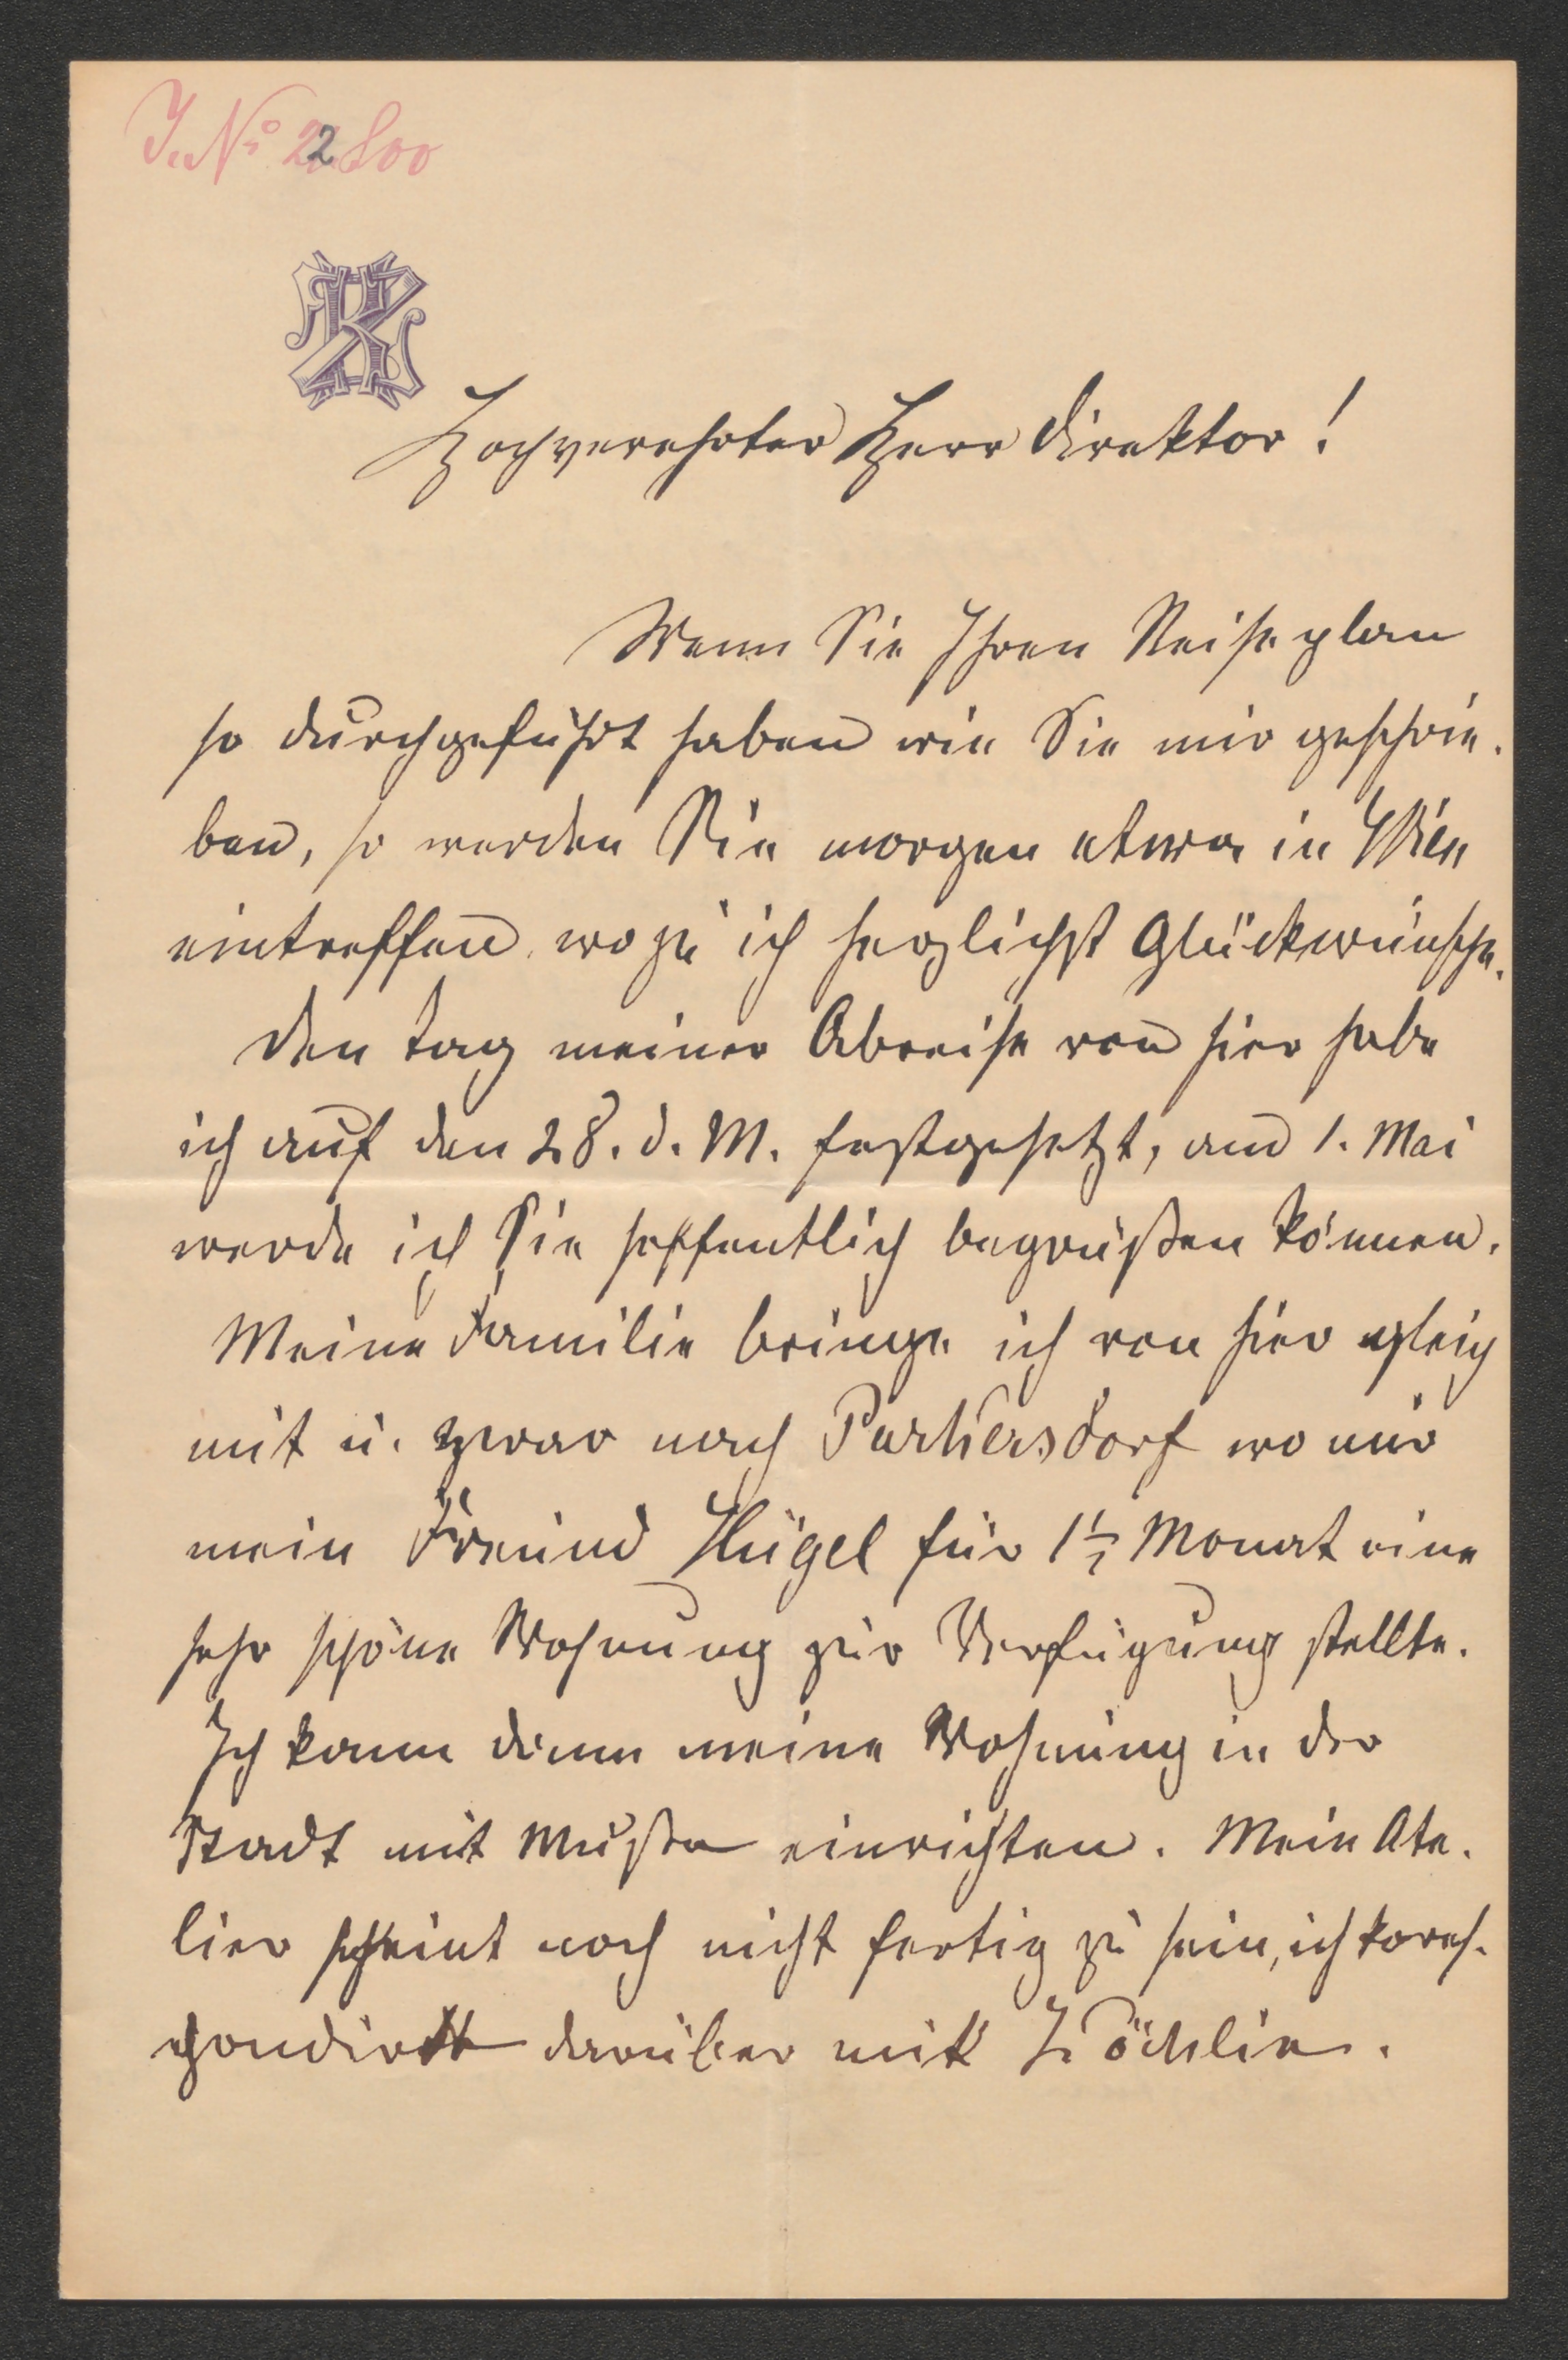 J. No 22800
Hochverehrter Herr Direktor!
Wenn Sie Ihren Reiseplan
so durchgeführt haben wie Sie mir geschrie-
ben, so werden Sie morgen etwa in Wien
eintreffen wozu ich herzlichst Glückwünsche.
Den Tag meiner Abreise von hier habe
ich auf den 28. d. M. festgesetzt, am 1. Mai
werde ich Sie hoffentlich begrüßen können.
Meine Familie bringe ich von hier gleich
mit u. zwar nach Purkersdorf wo mir
mein Freund Hügel für 1½ Monat eine
sehr schöne Wohnung zur Verfügung stellte.
Ich kann dann meine Wohnung in der
Stadt mit Muße einrichten. Mein Ate-
lier scheint noch nicht fertig zu sein, ich kores-
pondirte darüber mit